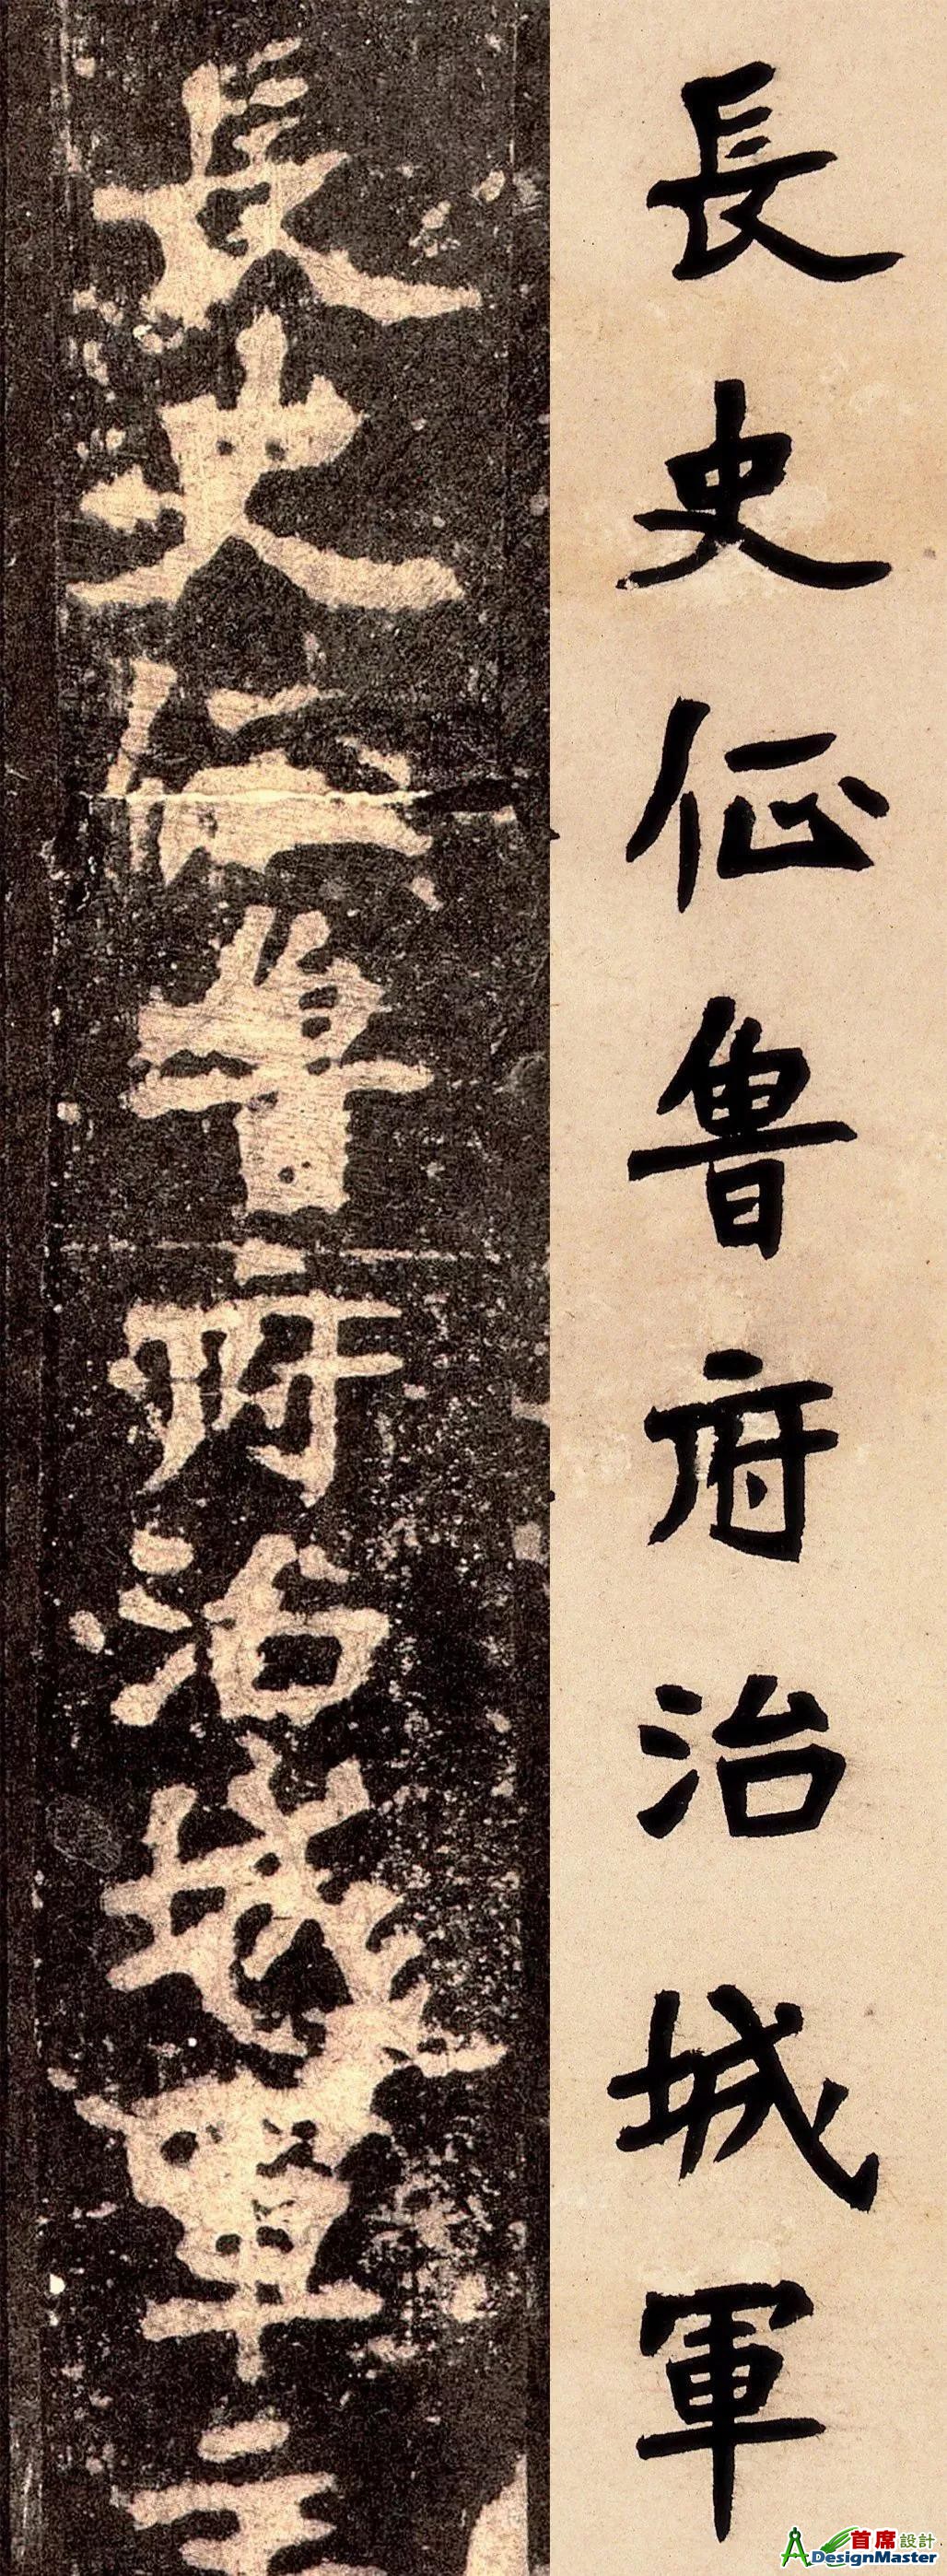 長史征魯府治城軍
長史征魯府治城軍主
首席設計
DesignMaster